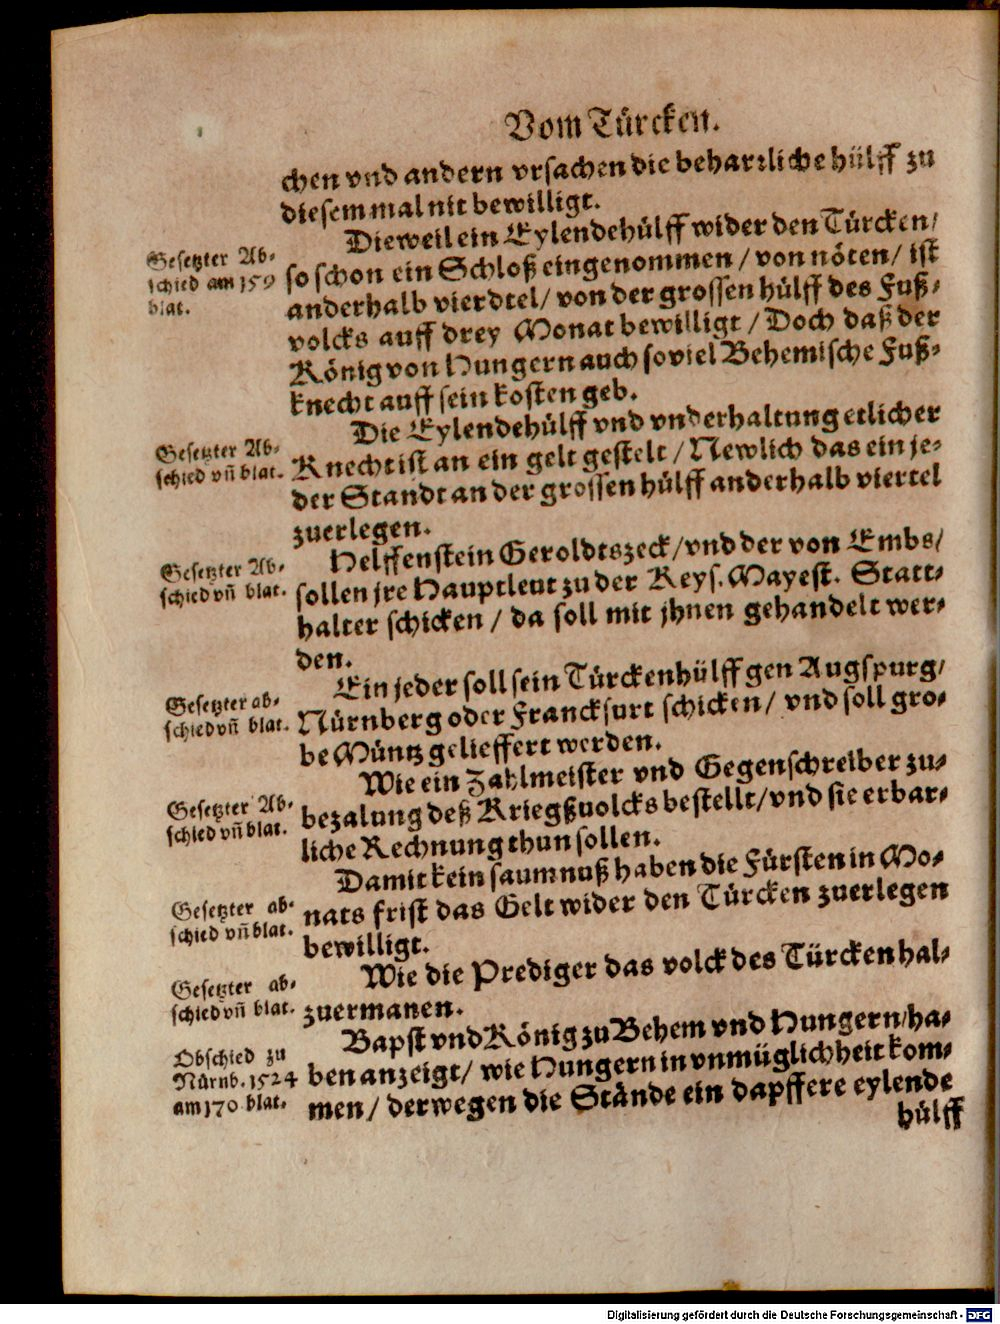 Vom Türcken.
chen vnd andern vrsachen die beharrliche hülff zu
diesem mal nit bewilligt.
Dieweil ein Eylendehülff wider den Türcken/
Gesetzter Ab-
schied am 159
blat.
so schon ein Schloß eingenommen / von nöten / ist
anderhalb vierdtel / von der grossen hülff des Fuß-
volcks auff drey Monat bewilligt / Doch daß der
König von Hungern auch soviel Behemische Fuß-
knecht auff sein kosten geb.
Die Eylendehülff vnd vnderhaltung etlicher
Gesetzter Ab-
schied vñ blat.
Knecht ist an ein gelt gestelt / Newlich das ein je-
der Standt an der grossen hülff anderhalb viertel
zuerlegen.
Helffenstein Geroldtszeck / vnd der von Embs /
Gesetzter Ab-
schied vñ blat.
sollen jre Hauptleut zu der Keys. Mayest. Statt-
halter schicken / da soll mit jhnen gehandelt wer-
den.
Ein jeder soll sein Türckenhülff gen Augspurg /
Gesetzter ab-
schied vñ blat.
Nürnberg oder Franckfurt schicken / vnd soll gro-
be Müntz gelieffert werden.
Wie ein Zahlmeister vnd Gegenschreiber zu-
Gesetzter Ab-
schied vñ blat.
bezalung deß Kriegßuolcks bestellt / vnd sie erbar-
liche Rechnung thun sollen.
Damit kein saumnuß haben die Fürsten in Mo-
Gesetzter ab-
schied vñ blat.
nats frist das Gelt wider den Türcken zuerlegen
bewilligt.
Wie die Prediger das volck des Türcken hal-
Gesetzter ab-
schied vñ blat.
zuermanen.
Bapst vnd König zu Behem vnd Hungern / ha-
Obschied zu
Nürnb. 1524
am 170 blat.
ben anzeigt / wie Hungern in vnmüglichheit kom-
men / derwegen die Stände ein dapffere eylende
hülff
Digitalisierung gefördert durch die Deutsche Forschungsgemeinschaft - DFG